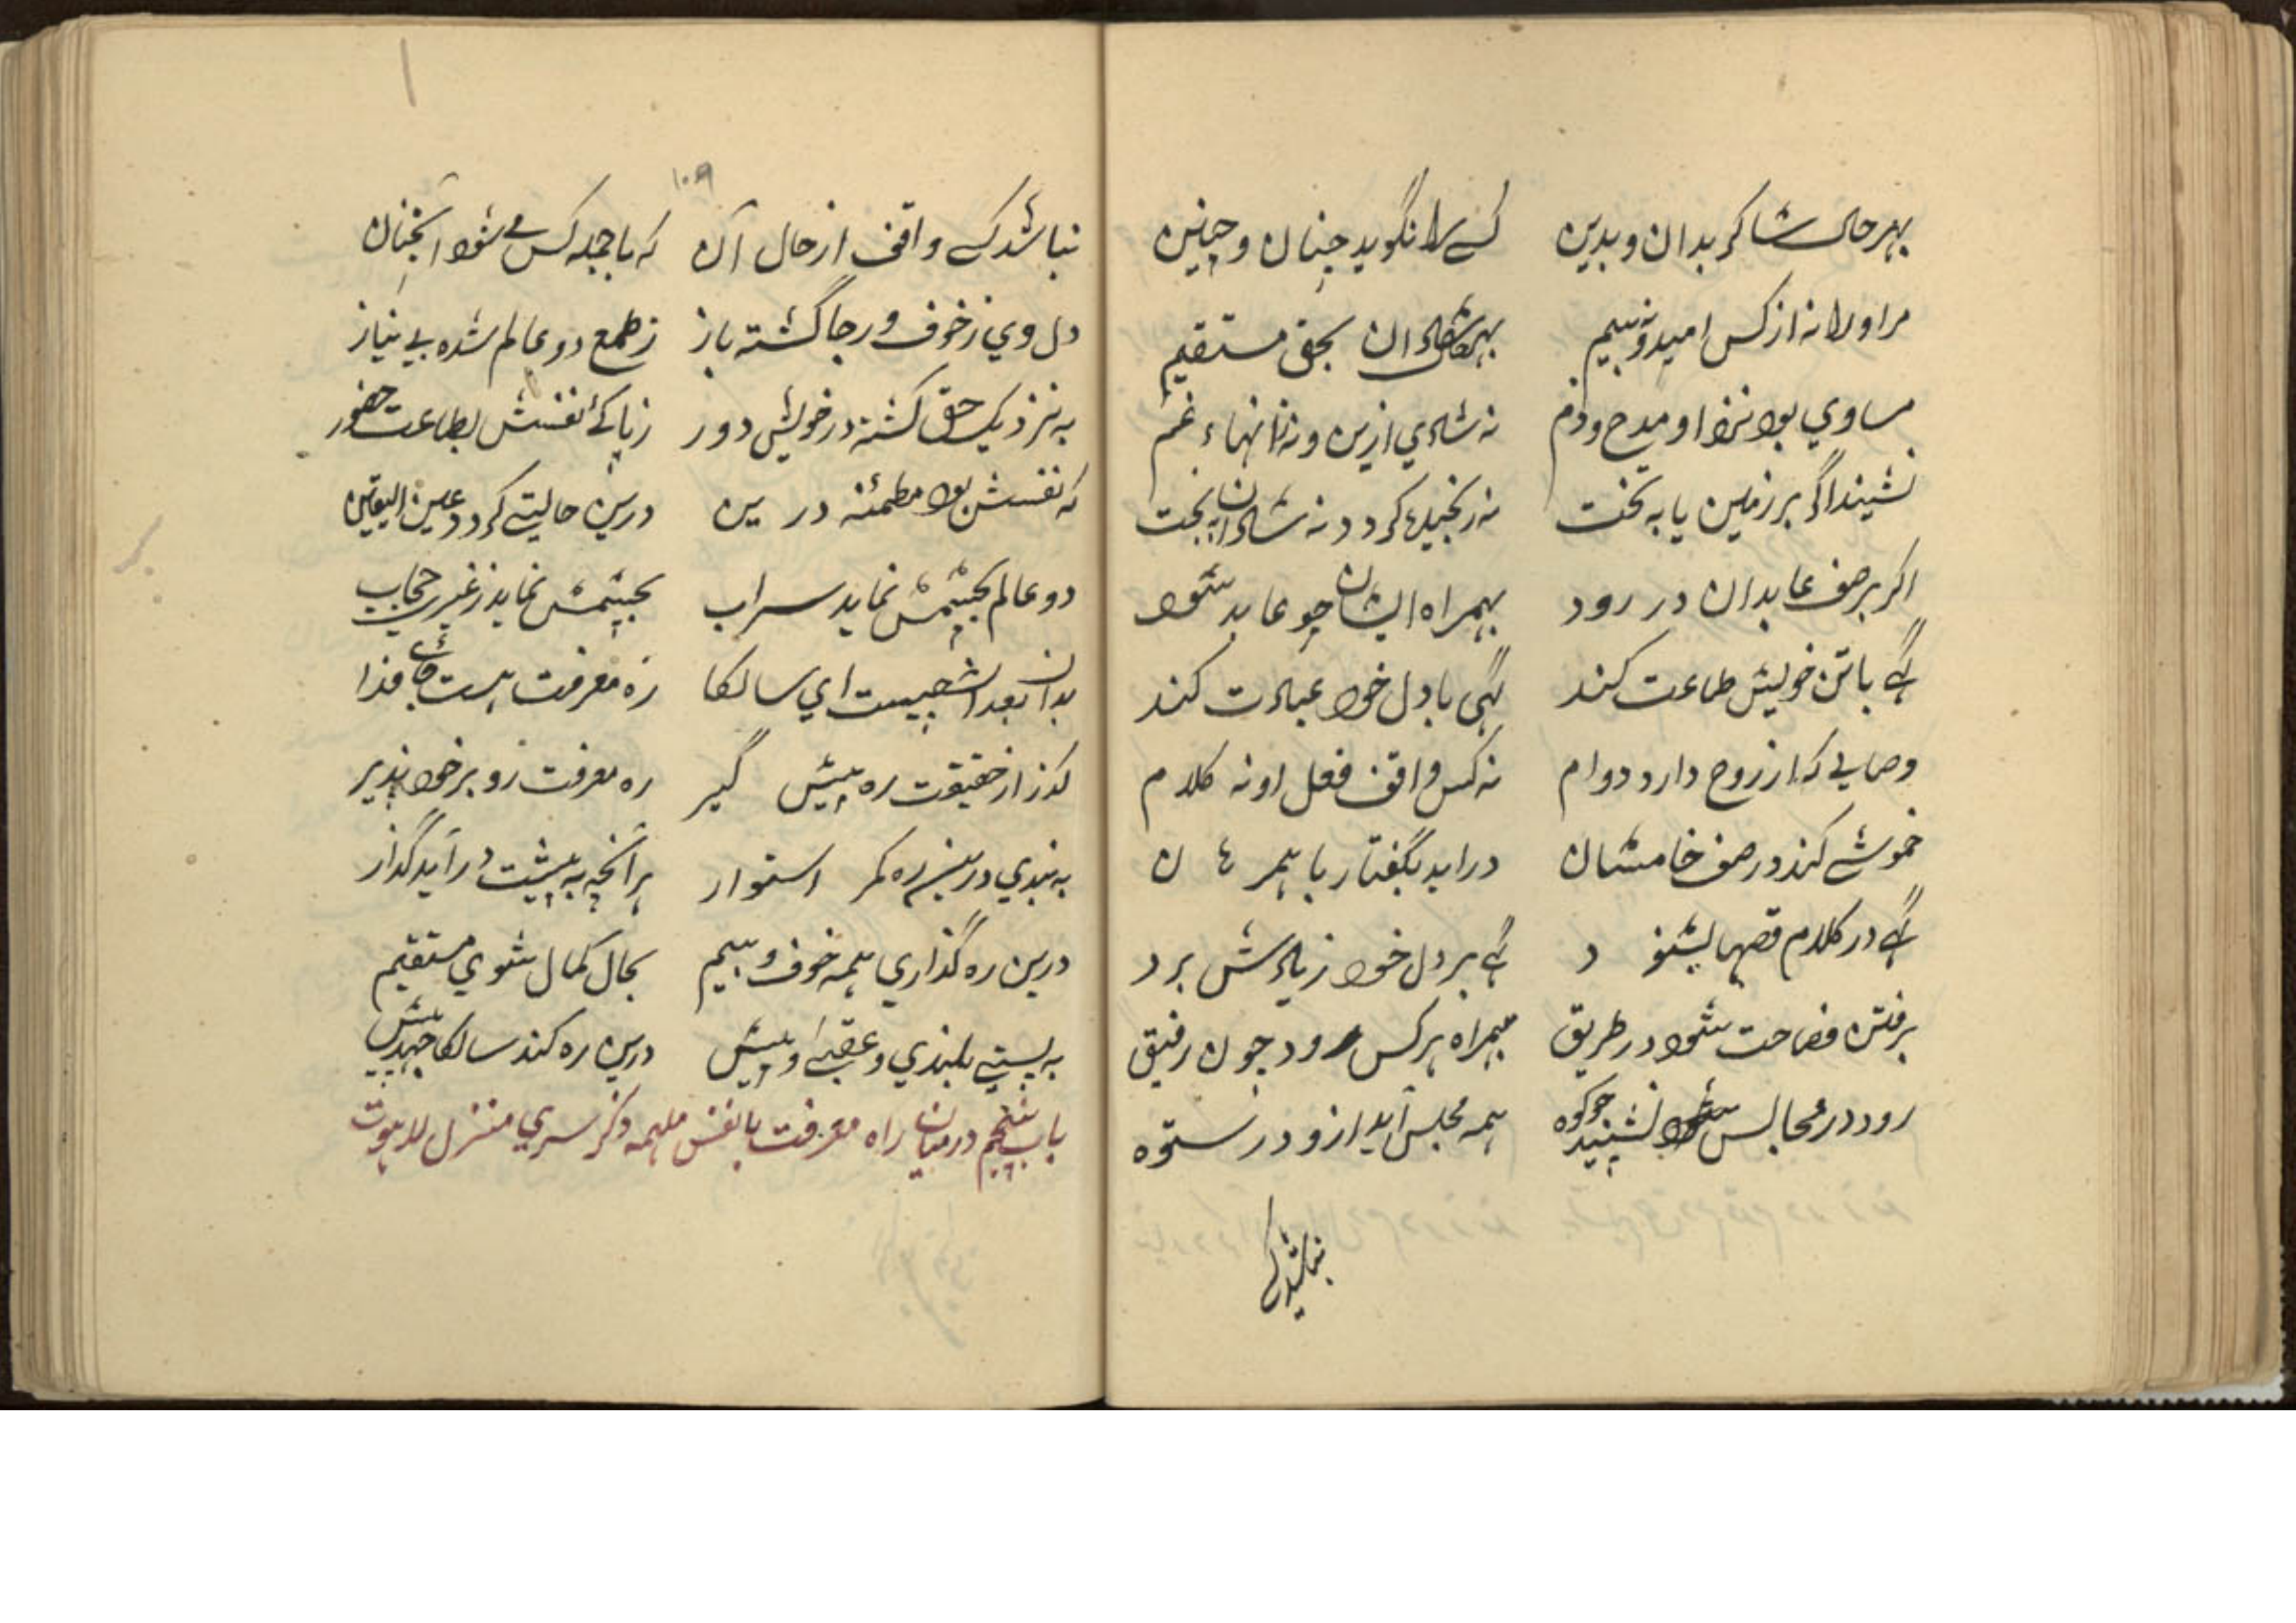 بهر حال شاکر بدان و بدین کسے را نگوید چنان و چنین
مر اورا نه از کس امید و نه بیم بحق مستقیم
مساوي بود نزد او مدح و ذم نه شادي ازین و نه زانهاء غم
نشیند اگر بر زمین یا به تخت نه رنجیده گردد نه شادان به بخت
اگر بر صف عابدان در رود بهمراه ایشان چو عابد شود
گہے با تن خویش طاعت کند گہی با دل خود عبادت کند
وصالے که از روح دارد دوام نه کس واقف فعل او نه کلام
خموشے کند در صف خامشان دراید بگفتار با همرهان
گہے در کلام قصها بشنود گہے بر دل خود زیادش برد
برفتن فصاحت شود در طریق بهمراه هر کس رود چون رفیق
رود در مجالس نشیند چو کوه همه مجلس آید ازو در ستوه
نباشد کسے
۱۰۹
نباشد کسے واقف از حال آن که با جمله کس مے شود آنچنان
دل وي ز خوف و رجا گشته باز ز طمع دو عالم شده بے نیاز
به نزدیک حق گشته در خویش دور ز پاکئ نفسش بطاعت حضور
که نفسش بود مطمئنه در ین درین حالتے گردد عین الیقین
دو عالم بچشمش نماید سراب بچشمش نماید ز غیر حجاب
بدان بعد اشعیست اي سالکا ره معرفت هست جائے فذا
گذر از حقیقت ره پیش گیر ره معرفت زو بر خود پذیر
به بندي درین ره کمر استوار هر آنچه به پیشت در آید گذار
درین ره گذاري همه خوف و بیم بحال کمال شوي مستقیم
به پستے بلندي و عقبه او پیش درین ره کند سالکا جهد پیش
باب پنجم در میان راه معرفت با نفس ملهمه و ذکر سري منزل لاهوت